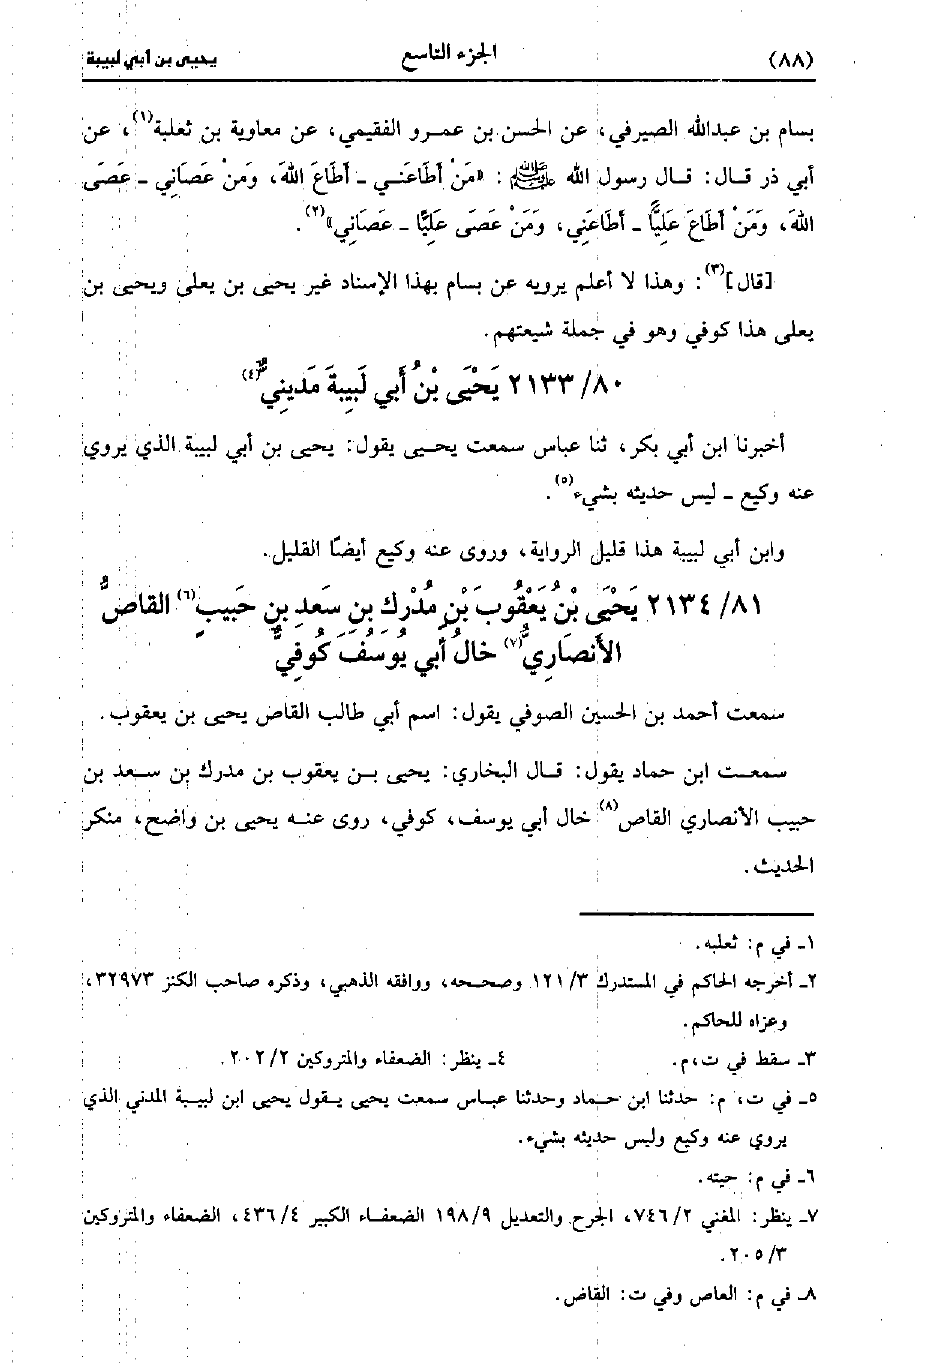 (٨٨) الجزء التاسع يحيى بن أبي لبيبة
بسام بن عبدالله الصيرفي، عن الحسن بن عمرو الفقيمي، عن معاوية بن ثعلبة(١)، عن
أبي ذر قال: قال رسول الله ﷺ: «مَنْ أطَاعَنـي ـ أطَاعَ اللهَ، وَمَنْ عَصَاني ـ عَصَى
اللهَ، وَمَنْ أطَاعَ عَلِيًّا ـ أطَاعَنِي، وَمَنْ عَصَى عَلِيًّا ـ عَصَانِي»(٢).
[قال](٣): وهذا لا أعلم يرويه عن بسام بهذا الإسناد غير يحيى بن يعلى ويحيى بن
يعلى هذا كوفي وهو في جملة شيعتهم.
٢١٣٣/٨٠ يَحْيَى بْنُ أَبي لَبِيبَةَ مَدِينيٌّ(٤)
أخبرنا ابن أبي بكر، ثنا عباس سمعت يحيى يقول: يحيى بن أبي لبيبة الذي يروي
عنه وكيع ـ ليس حديثه بشيء(٥).
وابن أبي لبيبة هذا قليل الرواية، وروى عنه وكيع أيضًا القليل.
٢١٣٤/٨١ يَحْيَى بْنُ يَعْقُوبَ بْنِ مُدْرِكِ بنِ سَعدِ بنِ حَبِيبٍ(٦) القاصُّ
الأَنصَارِيُّ(٧) خَالُ أَبي يُوسُفَ كُوفِيٌّ
سمعت أحمد بن الحسين الصوفي يقول: اسم أبي طالب القاص يحيى بن يعقوب.
سمعت ابن حماد يقول: قال البخاري: يحيى بن يعقوب بن مدرك بن سعد بن
حبيب الأنصاري القاص(٨) خال أبي يوسف، كوفي، روى عنه يحيى بن واضح، منكر
الحديث.
١ـ في م: ثعلبه.
٢ـ أخرجه الحاكم في المستدرك ١٢١/٣ وصححه، ووافقه الذهبي، وذكره صاحب الكنز ٣٢٩٧٣،
وعزاه للحاكم.
٣ـ سقط في ت، م. ٤ـ ينظر: الضعفاء والمتروكين ٢٠٢/٢.
٥ـ في ت، م: حدثنا ابن حماد وحدثنا عباس سمعت يحيى يقول يحيى ابن لبيبة المدني الذي
يروي عنه وكيع وليس حديثه بشيء.
٦ـ في م: حيته.
٧ـ ينظر: المغني ٧٤٦/٢، الجرح والتعديل ١٩٨/٩ الضعفاء الكبير ٤٣٦/٤، الضعفاء والمتروكين
٢٠٥/٣.
٨ـ في م: العاص وفي ت: القاض.